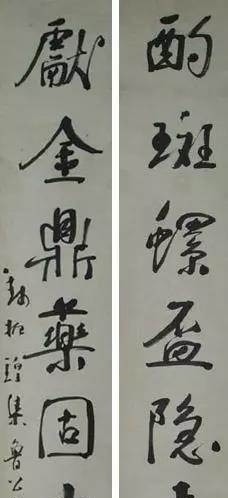 酌斑螺盃隐
獻金鼎藥固
集魯公